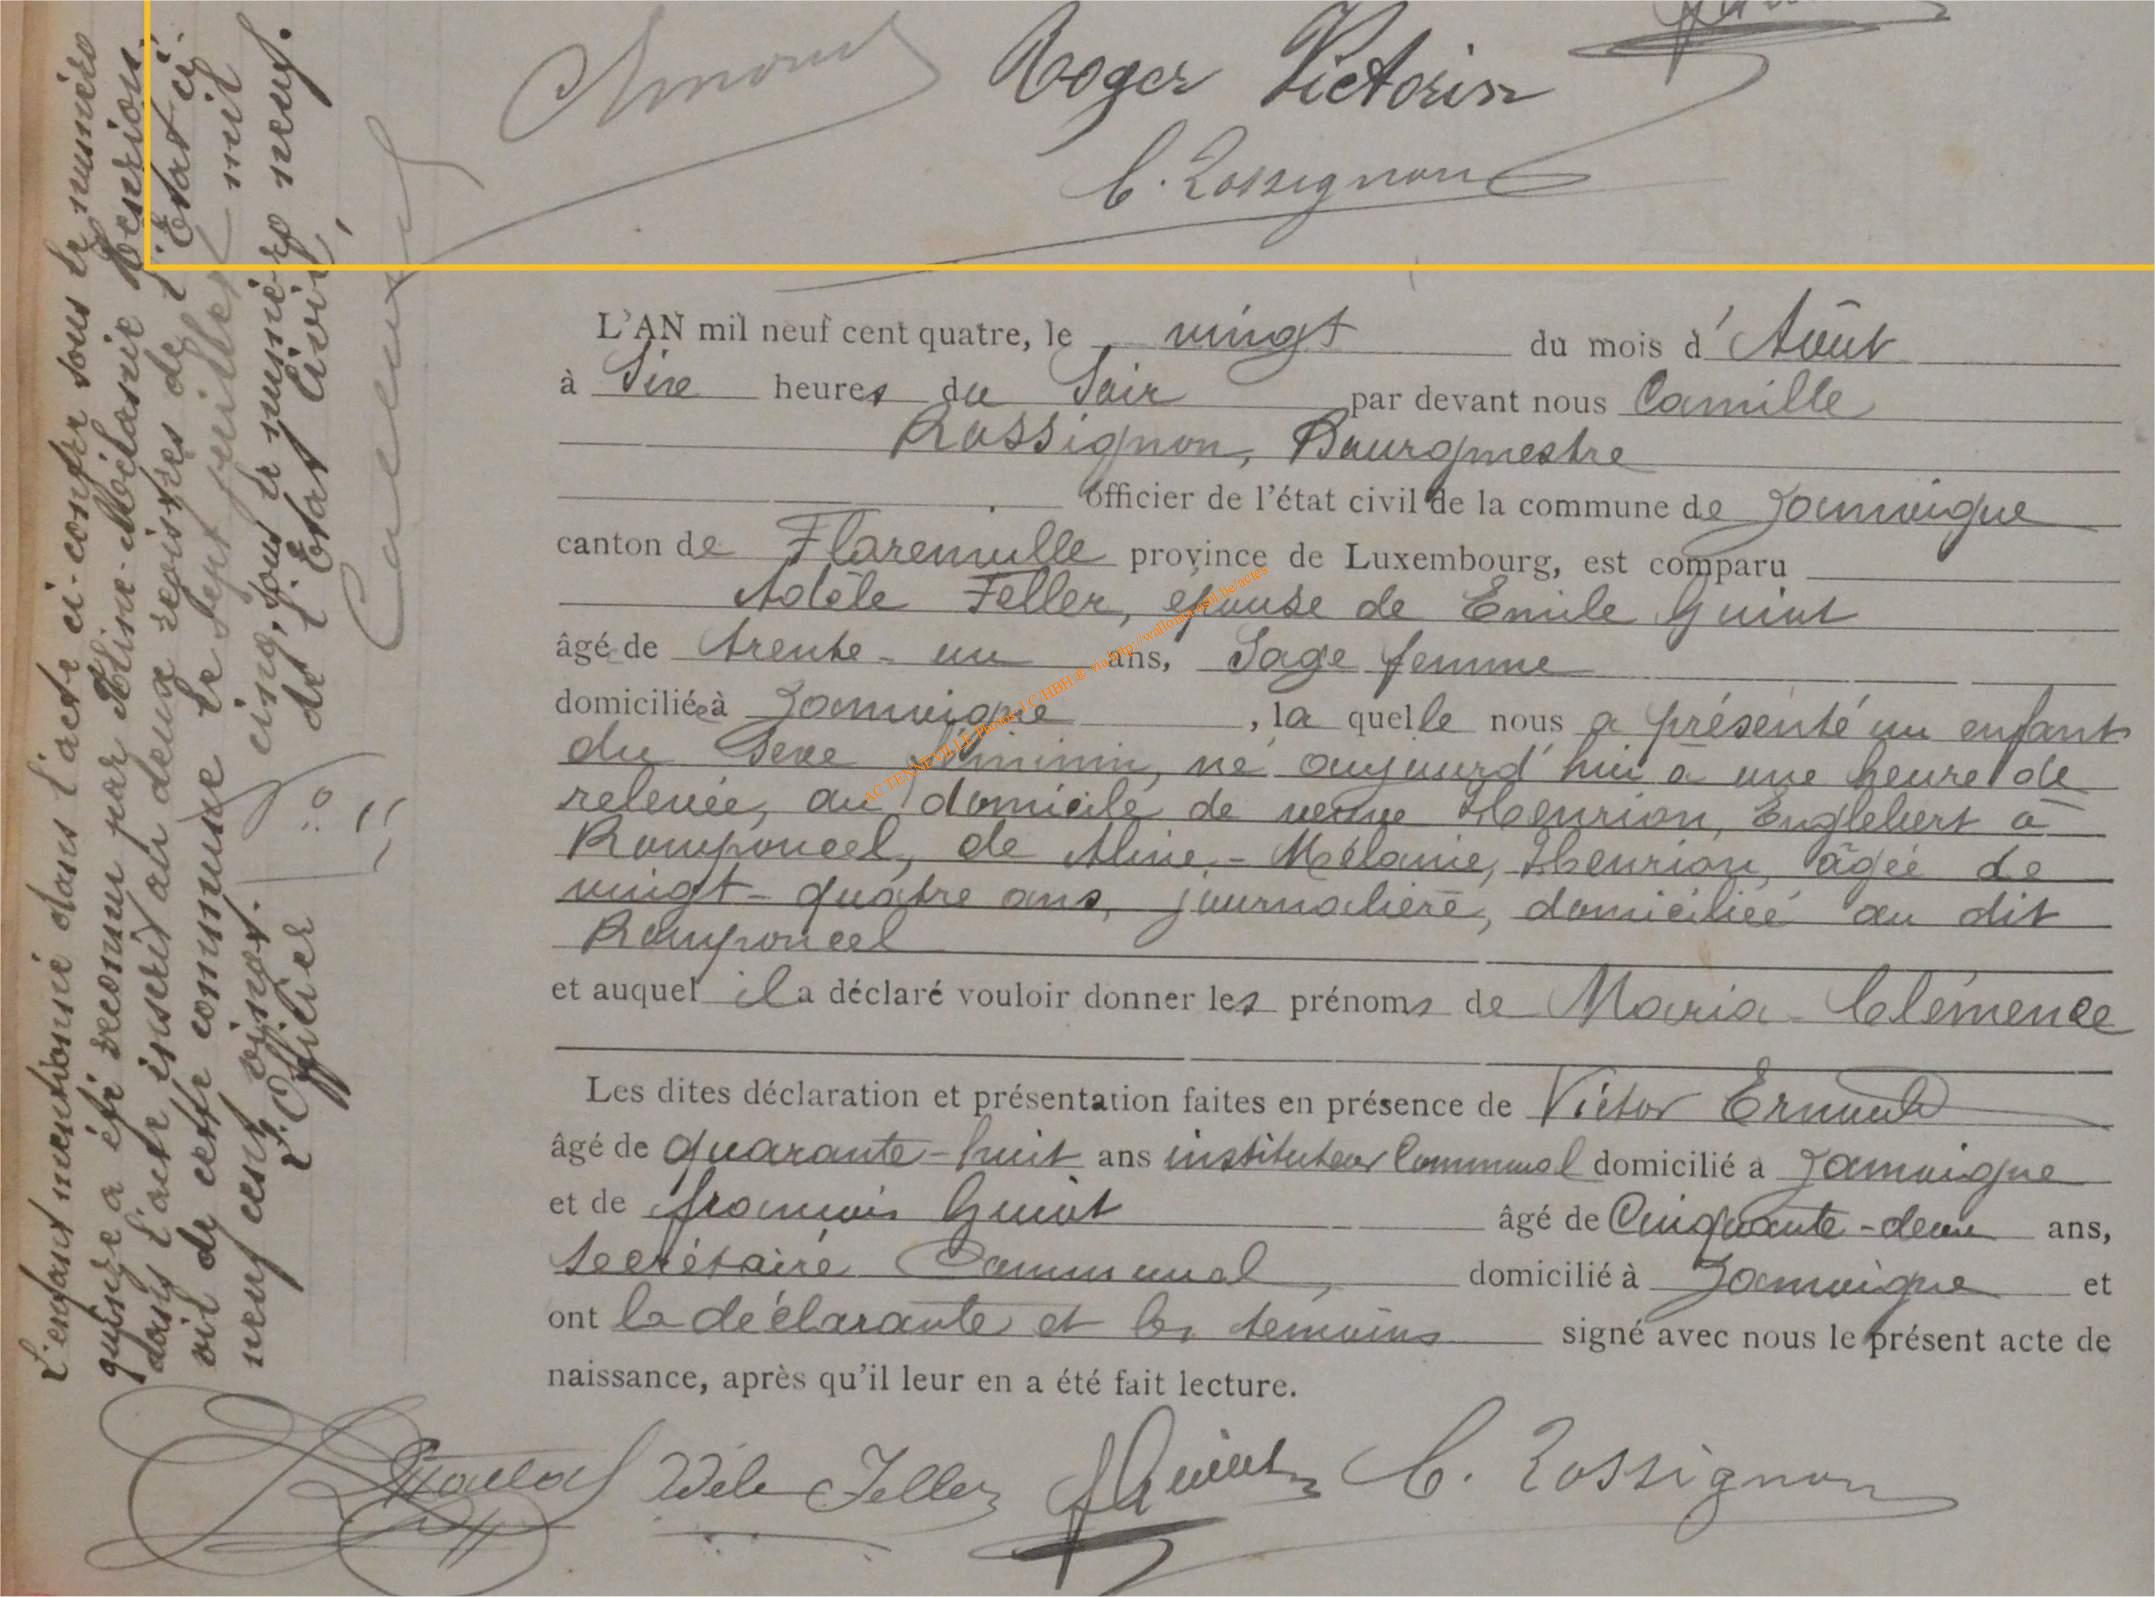 Roger Victorin
C. Rossignon
L'AN mil neuf cent quatre, le vingt du mois d'Août
à Six heures du Soir par devant nous Camille
Rossignon, Bourgmestre
officier de l'état civil de la commune de Jamoigne
canton de Florenville province de Luxembourg, est comparu
Adèle Feller, épouse de Emile Guiot
âgé de trente-un ans, Sage femme
domiciliée à Jamoigne, la quelle nous a présenté un enfant
du Sexe féminin, né aujourd'hui à une heure de
relevée, au domicile de veuve Henrion, Englebert à
Romponcel, de Aline-Mélanie, Henrion, âgée de
vingt-quatre ans, journalière, domiciliée au dit
Romponcel
et auquel il a déclaré vouloir donner les prénoms de Maria-Clémence
Les dites déclaration et présentation faites en présence de Victor
âgé de quarante-huit ans instituteur Communal domicilié à Jamoigne
et de françois Guiot âgé de Cinquante-deux ans,
Secrétaire Communal, domicilié à Jamoigne et
ont la déclarante et les témoins signé avec nous le présent acte de
naissance, après qu'il leur en a été fait lecture.
Adèle Feller
C. Rossignon
L'enfant mentionné dans l'acte ci-contre sous le numéro
quinze a été reconnu par Aline-Mélanie Henrion.
dans l'acte inscrit au deux registres de l'Etat ci-
vil de cette commune le sept juillet mil
neuf cent vingt-cinq, sous le numéro neuf.
L'Officier de l'Etat Civil,